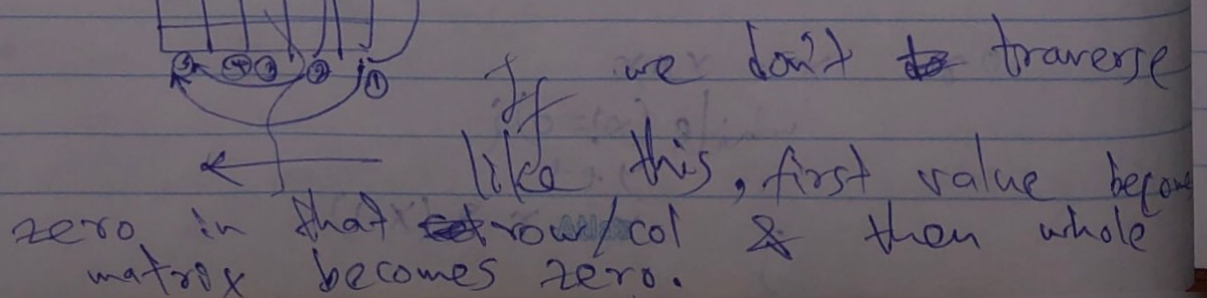 ⑤ ④ ③ ② ①
If we don't traverse
like this, first value become
zero in that row/col & then whole
matrix becomes zero.